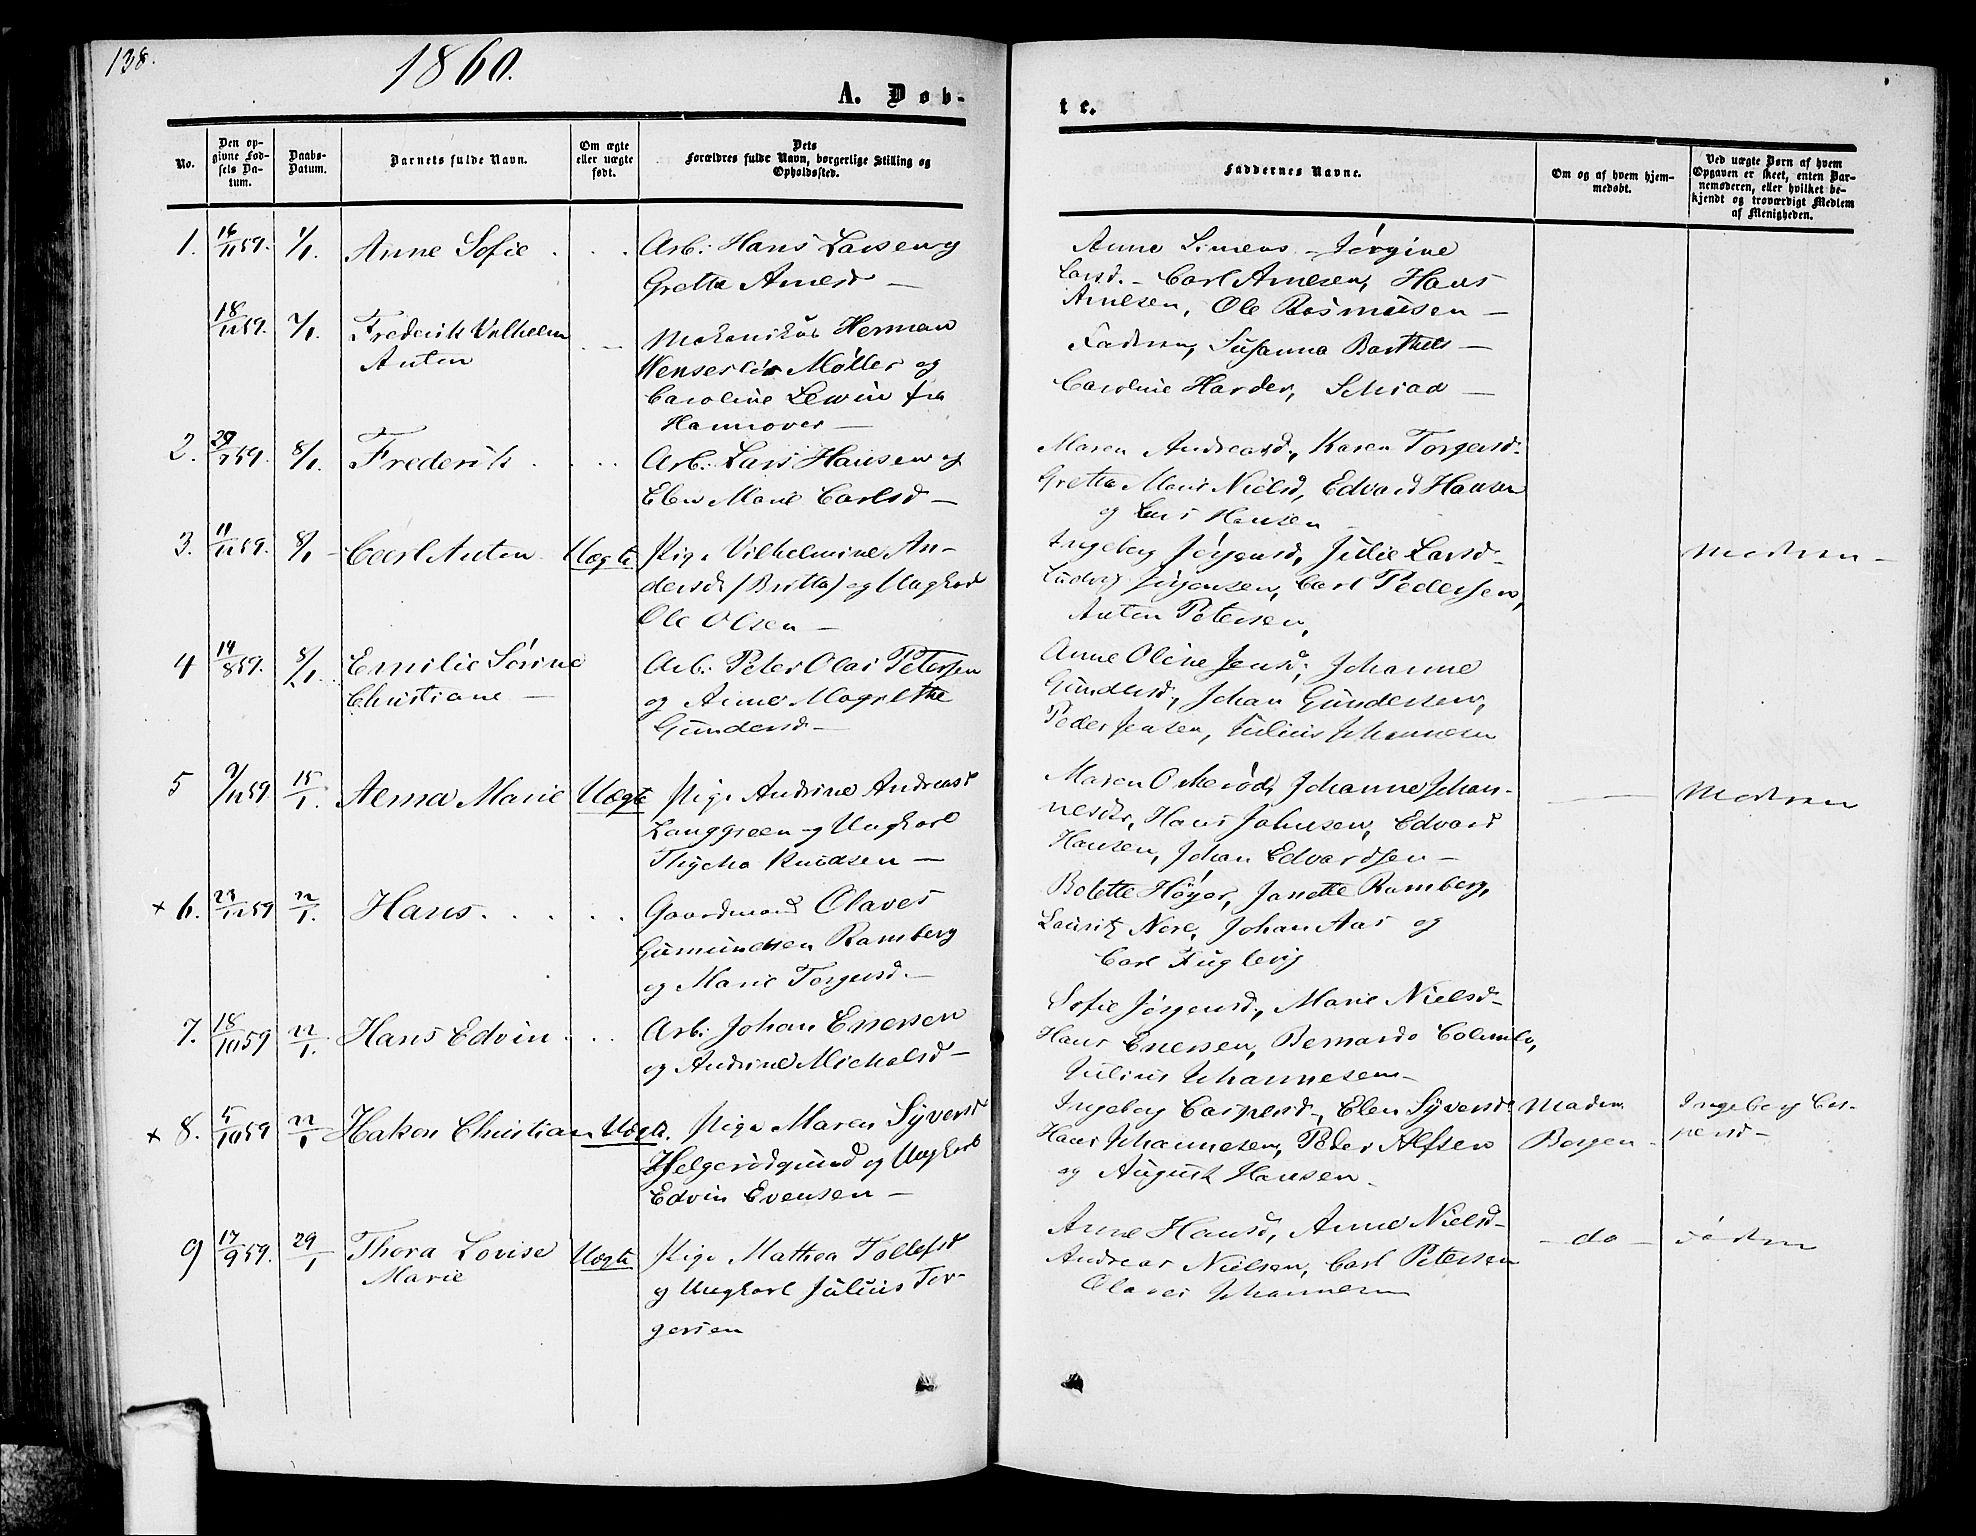 138.
1860.
A. Døb-
te.
No.
Den op-
givne Fød-
sels Da-
tum.
Daabs-
Datum.
Barnets fulde Navn.
Om ægte
eller uægte
født.
Dets
Forældres fulde Navn, borgerlige Stilling og
Opholdssted.
Faddernes Navne.
Om og af hvem hjem-
medøbt.
Ved uægte Børn af hvem
Opgaven er skeet, enten Bar-
nemoderen, eller hvilket be-
kjendt og troværdigt Medlem
af Menigheden.
1. 16/11 59. 1/1. Anne Sofie
Arb: Hans Larsen og
Grethe Arnesd —
Anne Simens - Jørgine
Larsd. - Carl Arnesen, Hans
Arnesen, Ole Rasmusen —
18/11 59. 7/1. Frederik Vilhelm
Anton
Mekanikus Herman
Wenserlos Møller og
Caroline Lewin fra
Hannover —
Fadren, Susanna Barthels —
Caroline Harder, Schrad —
2. 59. 8/1. Frederik
Arb: Lars Hansen og
Elen Marie Carlsd —
Maren Andreasd., Karen Torgersd.
Grethe Marie Nielsd, Edvard Hansen
og Lars Hansen —
3. 11/11 59. 8/1 - Carl Anton Uægte
Pige Vilhelmine An-
dersd (Britta) og Ungkarl
Ole Olsen —
Ingeborg Jørgensd, Julie Larsd -
Ludvig Jørgensen, Carl Pedersen,
Anton Petersen,
Modren —
4 14/8 59. 8/1. Emilie Sørine
Christiane —
Arb: Peter Olai Petersen
og Anne Magrethe
Gundersd —
Anne Oline Jensd, Johanne
Gundersd., Johan Gundersen,
Peder Jensen, Julius Johannesen
5 9/11 59. 15/1. Anna Marie Uægte
Pige Andrine Andreasd
Langgreen og Ungkarl
Thycho Knudsen —
Maren Omberød, Johanne Johan-
nesdtr, Hans Johnsen, Edvard
Hansen, Johan Edvardsen —
Modren
× 6. 23/11 59 22/1. Hans.
Gaardmand Olaves
Gumundsen Ramberg
og Marie Torgersd. —
Bolette Høyer, Janette Ramberg,
Lauritz Nore, Johan Aas og
Carl Fuglevig
7. 18/10 59 22/1. Hans Edvin
Arb: Johan Enersen
og Andrine Michelsd —
Sofie Jørgensd., Marie Nielsd -
Hans Enersen, Bernardo Columbo,
Julius Johannesen —
× 8. 5/10 59 22/1 Hakon Christian Uægte.
Pige Maren Syversd
Helgerødgrund og Ungkarl
Edvin Evensen —
Ingeborg Caspersd -, Elen Syversd
Hans Johannesen, Peder Alfsen
og August Hansen -
Maden
Borgen -
Ingeborg Cas-
persd —
9 17/9 59. 29/1 Thora Lovise
Marie
Uægte
Pige Mathea Tollefsd
og Ungkarl Julius Tor-
gersen
Anne Hansd, Anne Nielsd -
Andreas Nielsen, Carl Petersen
Olaves Johannesen
- do -